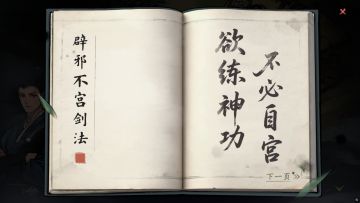 欲练神功
不必自宫
下一頁
辟邪不宫剑法